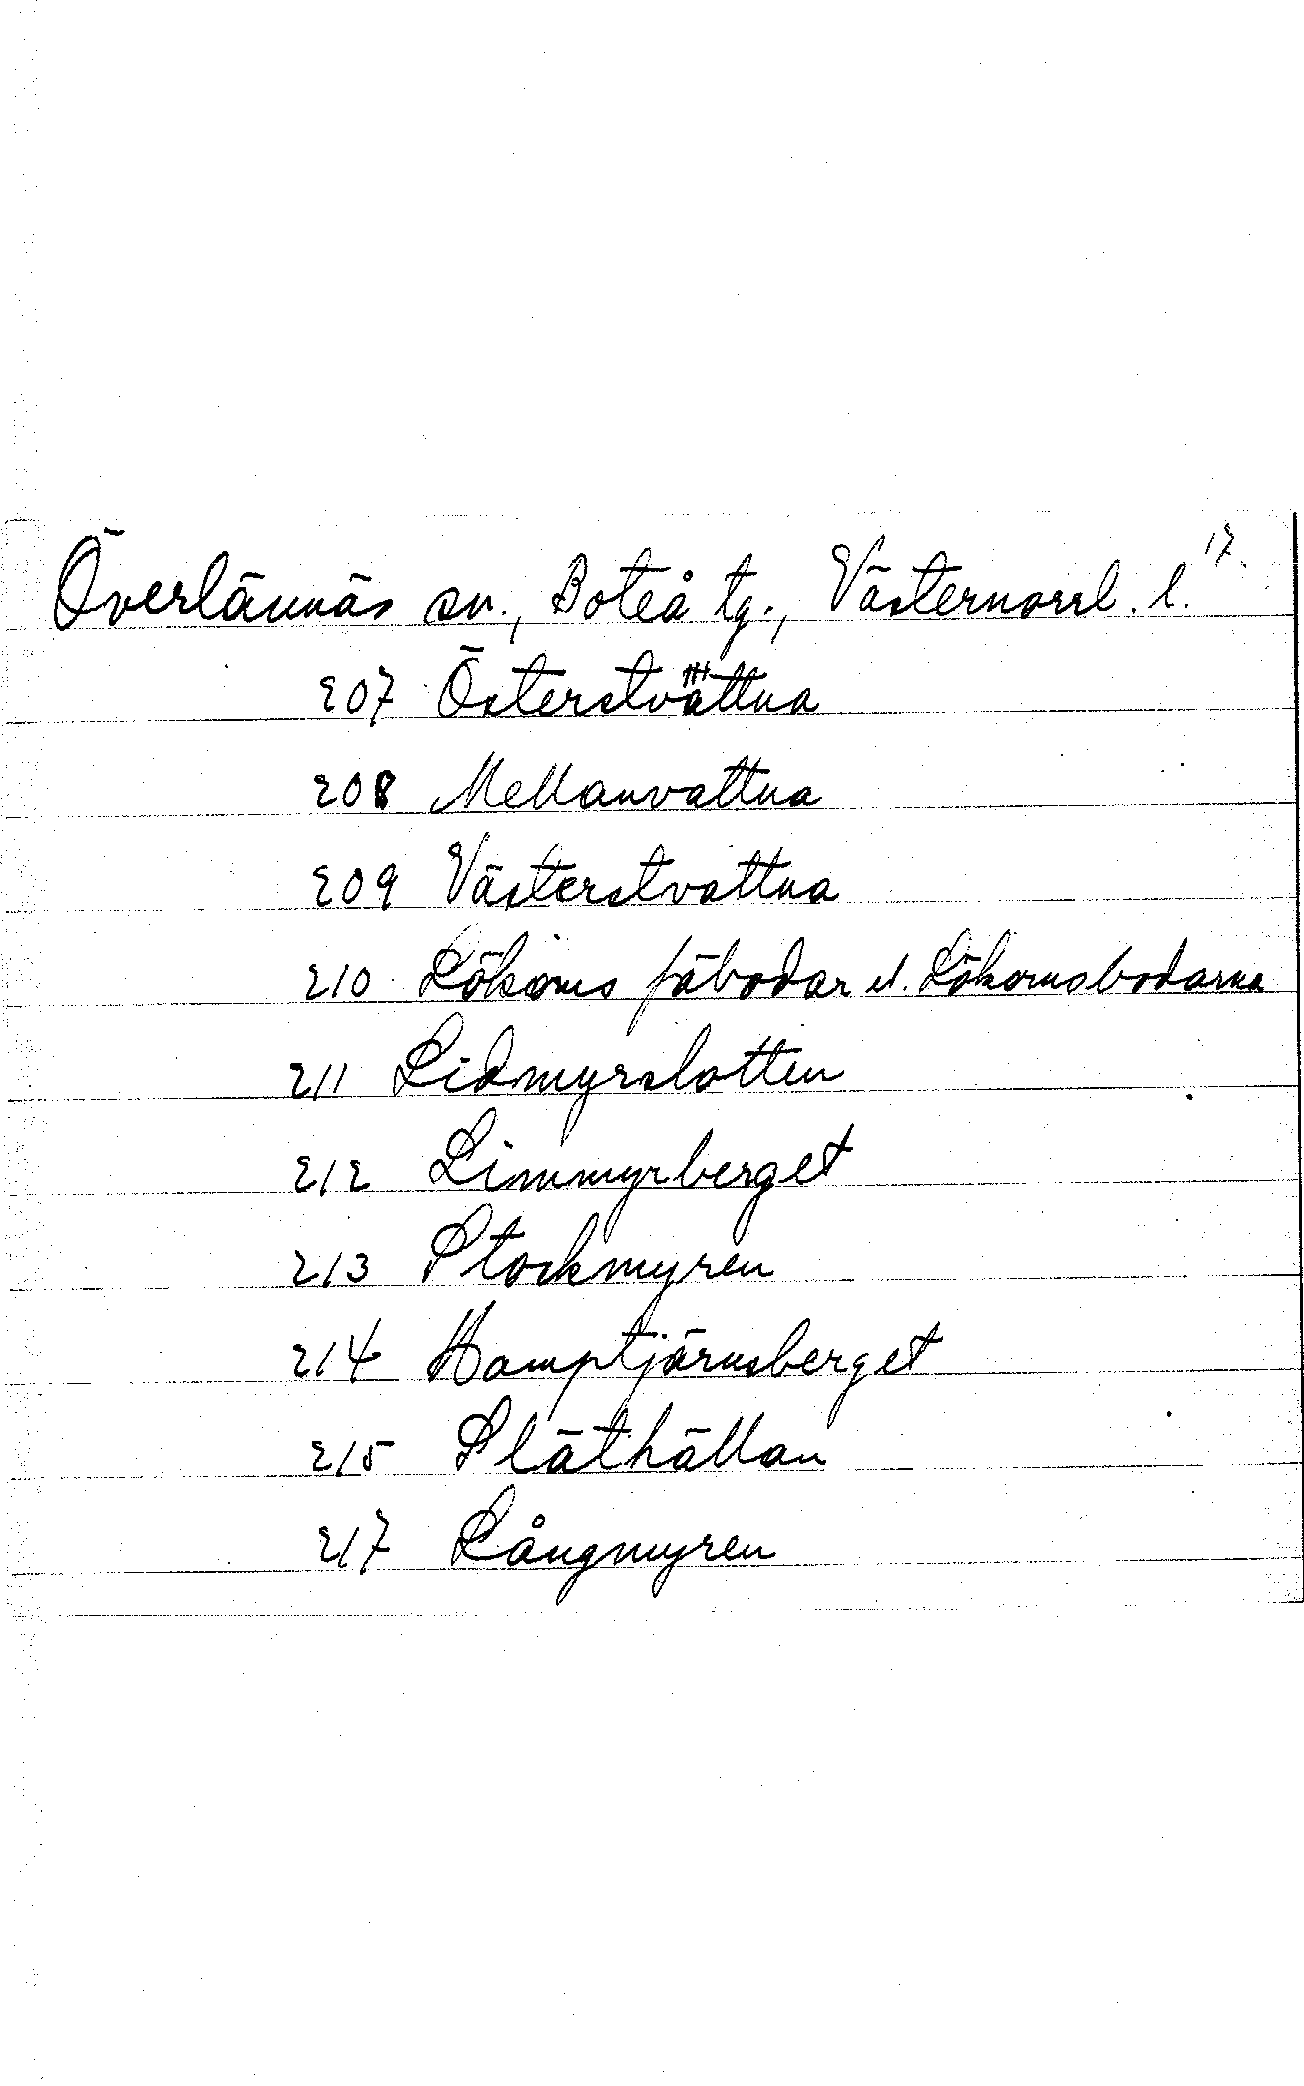 17.
Överlännäs sn., Boteå tg., Västernorrl. l.
207 Österstvattna
208 Mellanvattna
209 Västerstvattna
210 Lökoms fäbodar el. Lökomsbodarna
211 Lidmyrslotten
212 Limmyrberget
213 Stockmyren
214 Hamptjärnsberget
215 Släthällan
217 Långmyren